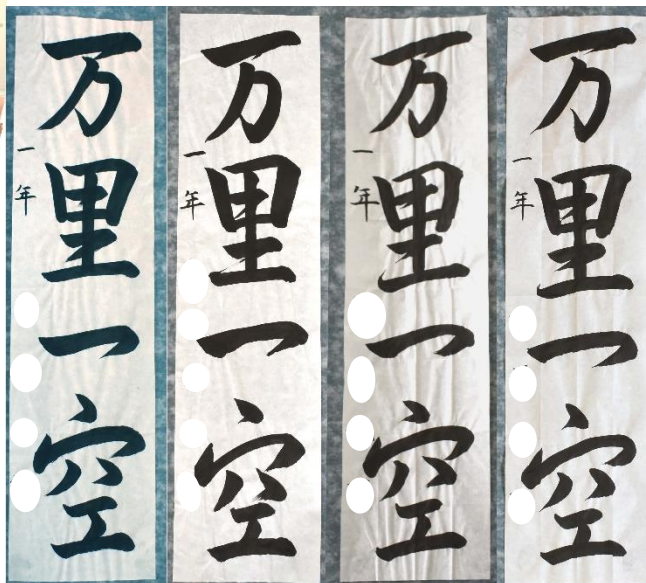 万里一空
一年
万里一空
一年
万里一空
一年
万里一空
一年